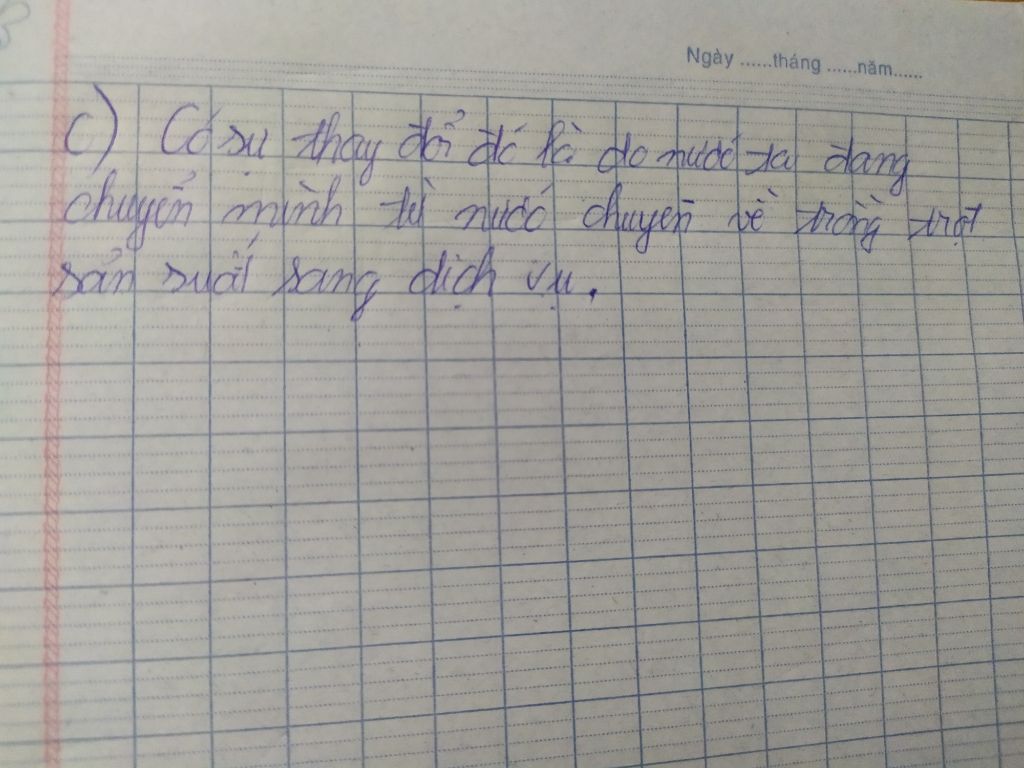 Ngày ......tháng ......năm......
c) Có sự thay đổi đó là do nước ta đang
chuyển mình từ nước chuyên về trồng trọt
sản suất sang dịch vụ.